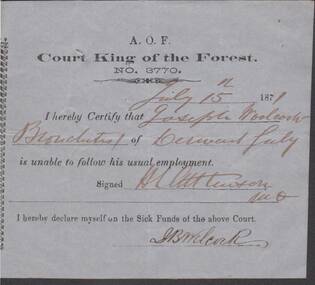 A. O. F.
Court King of the Forest.
NO. 3770.
July 15th 187
I hereby Certify that Joseph
of July
is unable to follow his usual employment.
Signed
I hereby declare myself on the Sick Funds of the above Court.
J B Welcock